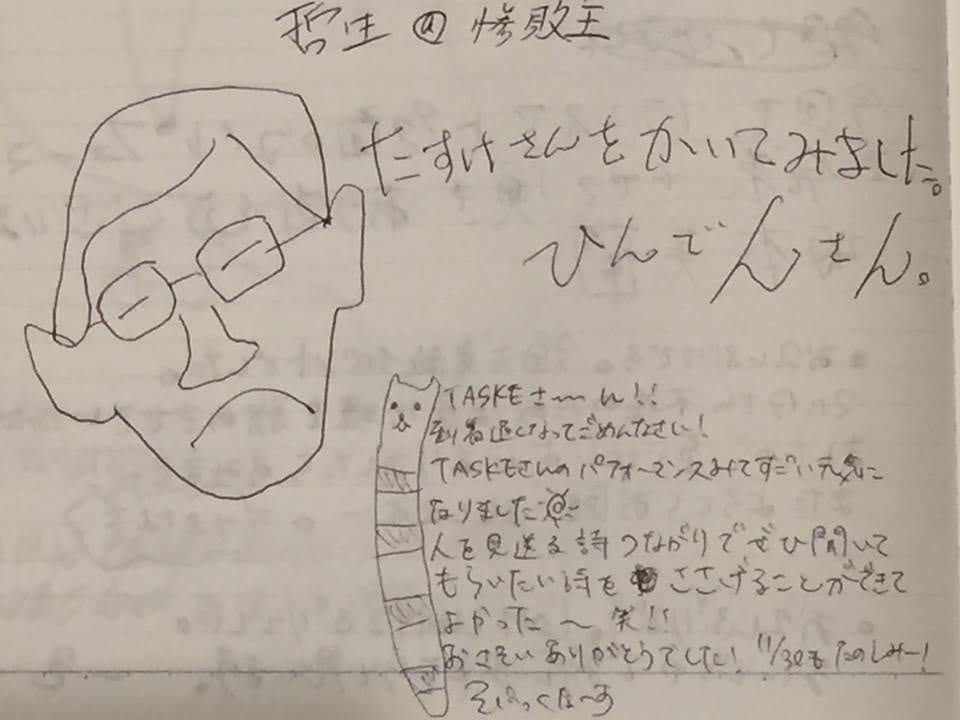 哲生の惨敗王
たすけさんをかいてみました。
ひんでんさん。
TASKEさ〜ん!!
到着遅くなってごめんなさい!
TASKEさんのパフォーマンスみてすごい元気に
なりました
人を見送る詩つながりでぜひ聞いて
もらいたい詩を ささげることができて
よかった〜笑!!
おさそいありがとうでした! 11/30もたのしみー!